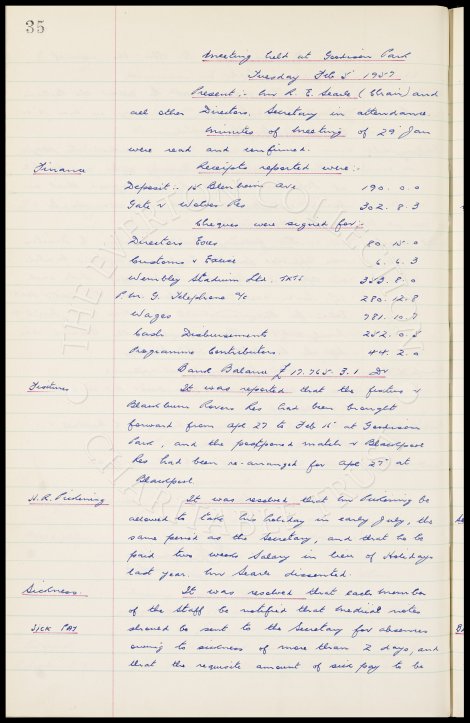 35
Meeting held at Goodison Park
Tuesday Feb 5' 1957
Present:- Mr R. E. Searle (Chair) and
all other Directors, Secretary in attendance.
Minutes of Meeting of 29' Jan
were read and confirmed.
Finance Receipts reported were:-
Deposit :- 15 Blenheim Ave 190. 0. 0
Gate v Wolves Res 302. 8. 3
Cheques were signed for:-
Directors Exes 80. 15. 0
Customs & Excise 6. 6. 3
Wembley Stadium Ltd. TKTS 353. 8. 0
P.M.G. Telephone a/c 280. 12. 8
Wages 781. 10. 7
Cash Disbursements 252. 0. 5
Programme Contributors 44. 2. 0
Bank Balance £ 17.765. 3. 1 Dr
Fixtures It was reported that the fixture v
Blackburn Rovers Res had been brought
forward from Apl 27 to Feb 15' at Goodison
Park, and the postponed match v Blackpool
Res had been re-arranged for Apl 27' at
Blackpool.
H. R. Pickering It was resolved that Mr Pickering be
allowed to take his holiday in early July, the
same period as the Secretary, and that he be
paid two weeks salary in lieu of Holidays
last year. Mr Searle dissented.
Sickness. It was resolved that each member
of the Staff be notified that medical notes
SICK PAY should be sent to the Secretary for absences
owing to sickness of more than 2 days, and
that the requisite amount of sick pay to be